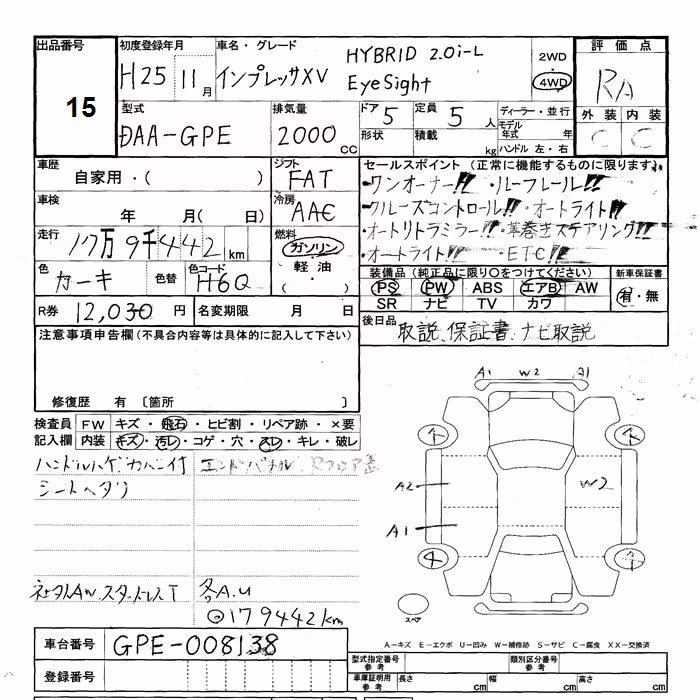 出品番号 初度登録年月 車名・グレード 評価点
15
H25 11月 インプレッサXV HYBRID 2.0i-L
EyeSight
2WD
4WD
RA
型式 排気量 ドア 5 定員 5人 ディーラー・並行
DAA-GPE 2000cc 形状 積載 kg
モデル年式 年
ハンドル 左・右
外装 内装
C C
車歴 シフト セールスポイント (正常に機能するものに限ります)
自家用・( ) FAT
・ワンオーナー!! ・ルーフレール!!
車検 冷房
年 月( 日) AAC
・クルーズコントロール!! ・オートライト!!
走行 燃料
17万9千442km ガソリン・軽油・( )
・オートリトラミラー!! ・革巻きステアリング!!
・オートライト!! ・ETC!!
色 色替 色コード
カーキ H6Q
装備品(純正品に限り○をつけてください) 新車保証書
PS PW ABS エアB AW 有・無
SR ナビ TV カワ
R券 12,030円 名変期限 月 日
後日品 取説、保証書、ナビ取説
注意事項申告欄(不具合内容等は具体的に記入して下さい)
修復歴 有 〔箇所 〕
検査員 FW キズ・飛石・ヒビ割・リペア跡・×要
記入欄 内装 キズ・汚レ・コゲ・穴・スレ・キレ・破レ
ハンドルハゲ カバー付
シートヘタリ
社外AW.スタッドレスT 各A.U
179442km
A1 W2 A1
4 4
A2 W2
A1
4 4
スペア
A-キズ E-エクボ U-凹み W-補修跡 S-サビ C-腐食 XX-交換済
車台番号 GPE-008138
型式指定番号 参考 類別区分番号 参考
登録番号
車庫証明用 参考 長さ cm 幅 cm 高さ cm